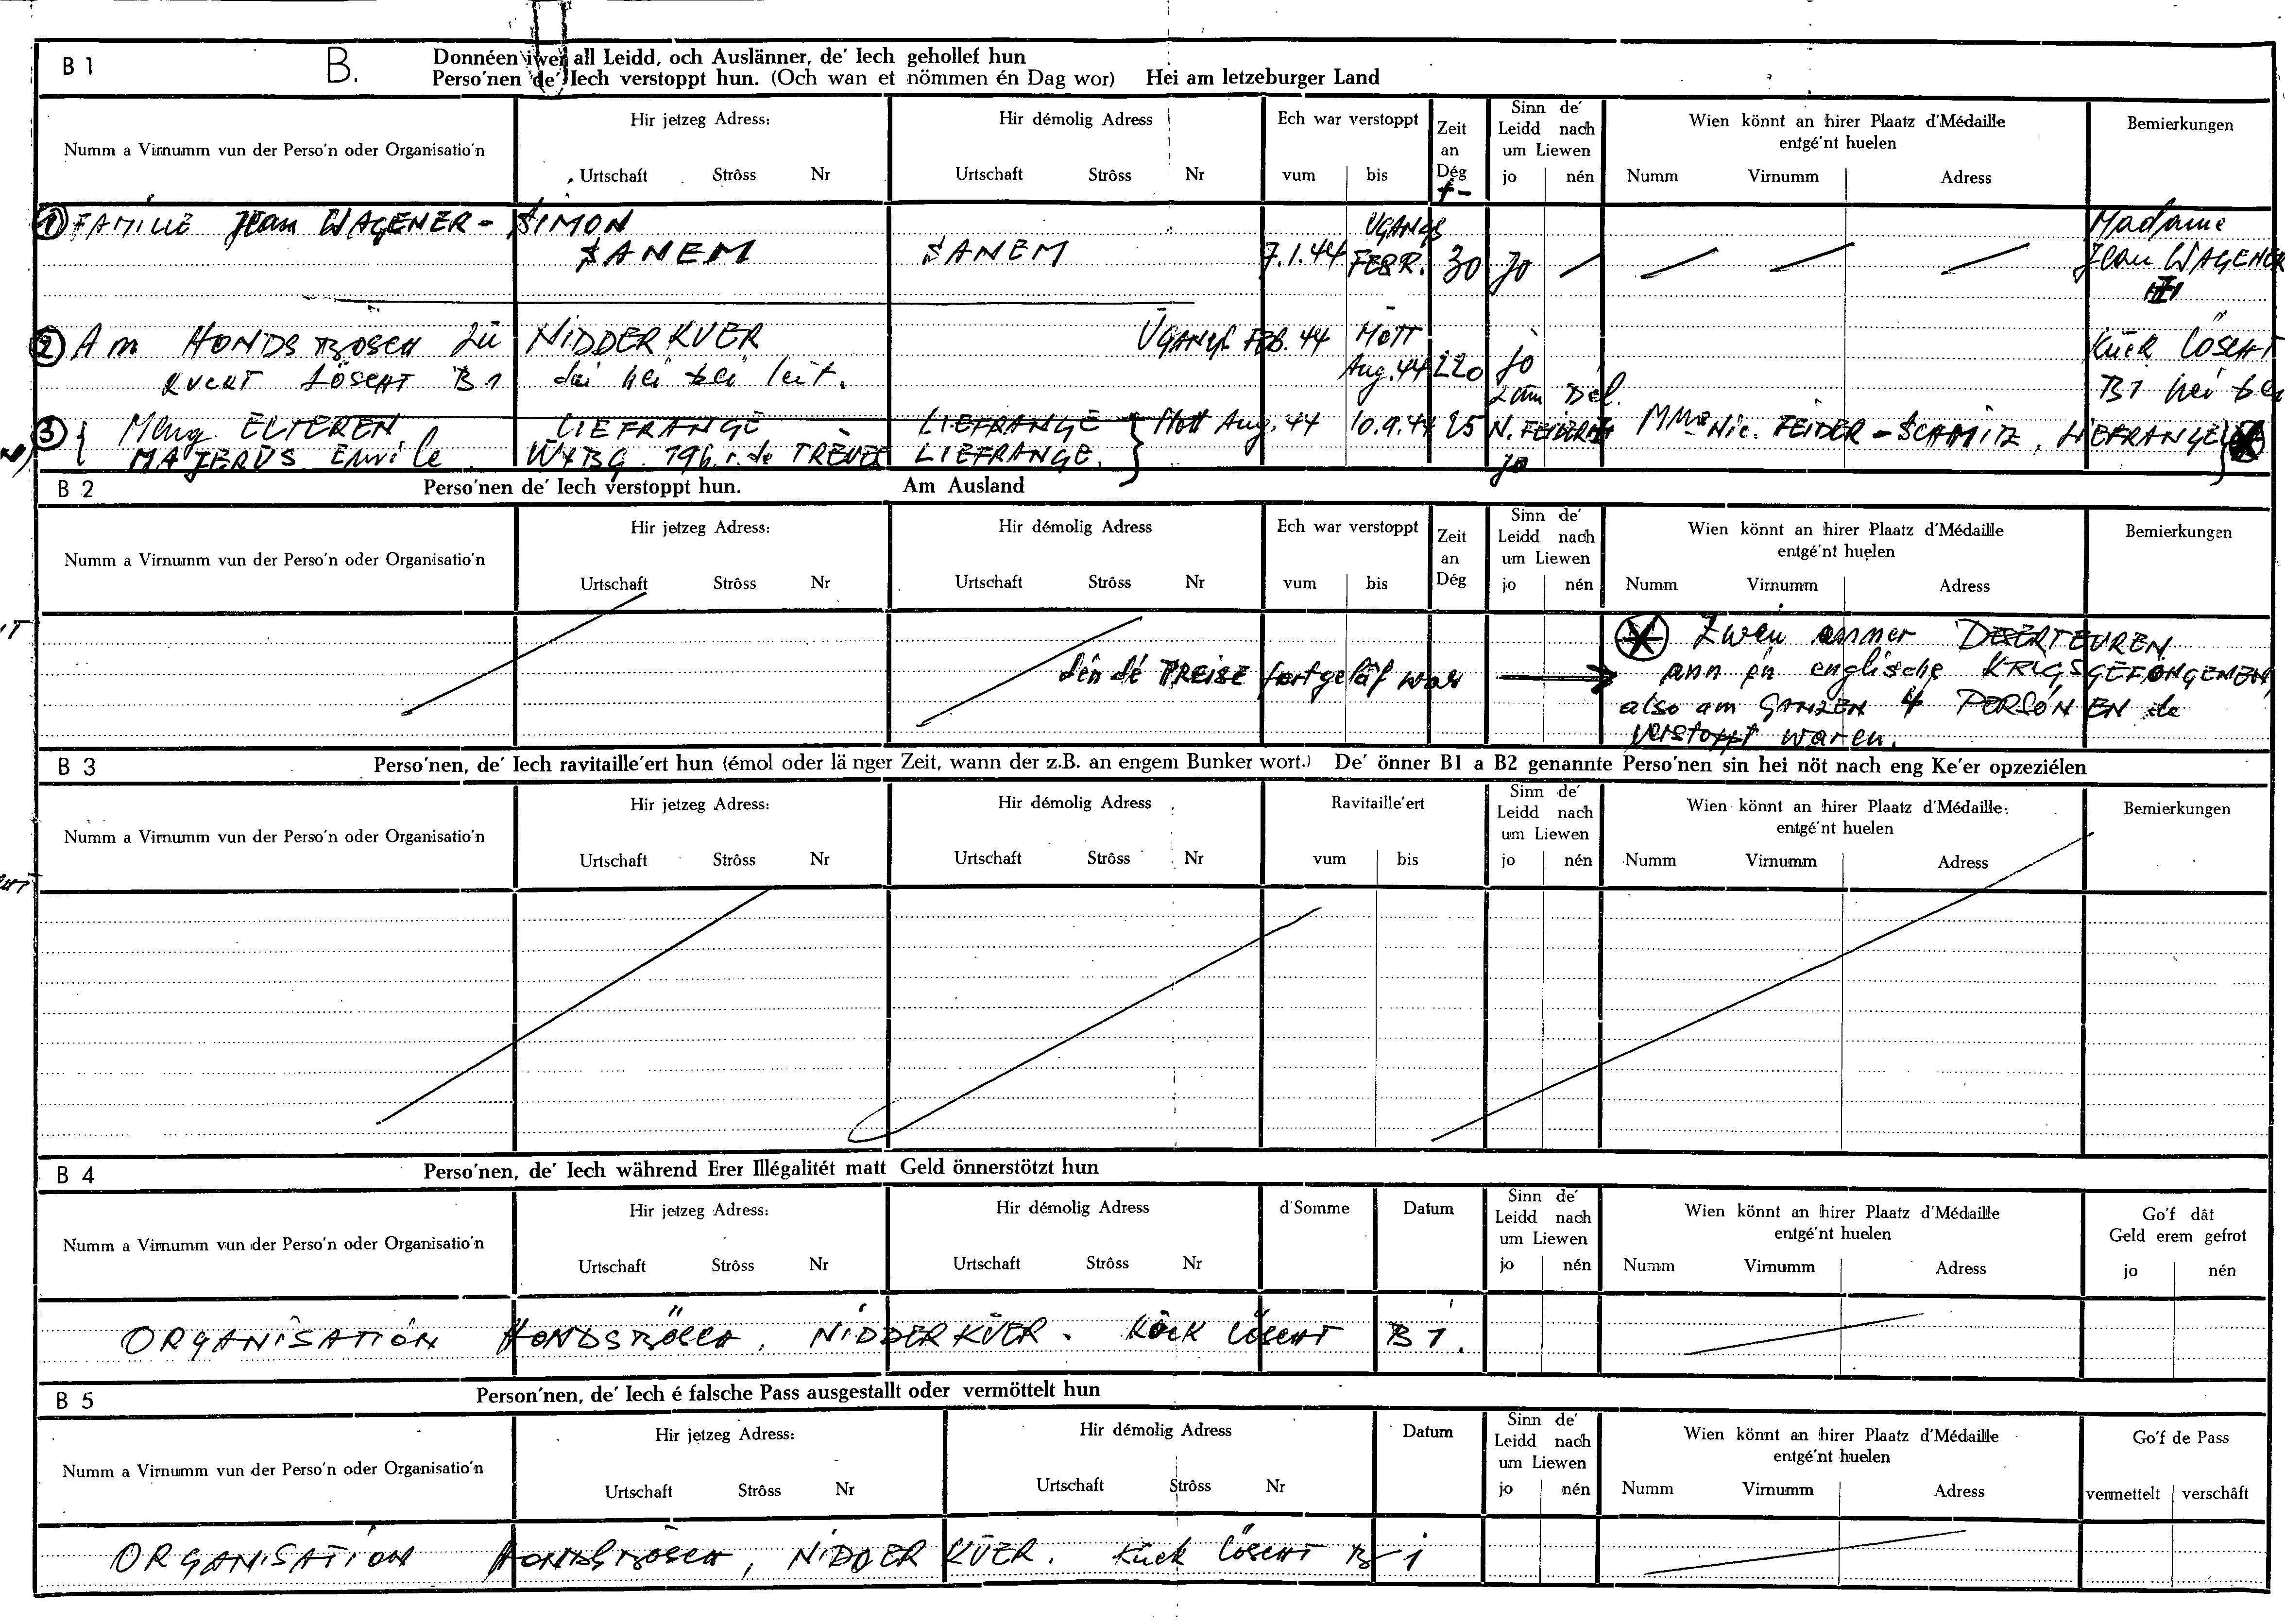 B 1 B. Donnéen iwer all Leidd, och Auslänner, de' Iech gehollef hun
Perso'nen de' Iech verstoppt hun. (Och wan et nömmen én Dag wor) Hei am letzeburger Land
Numm a Virnumm vun der Perso'n oder Organisatio'n
Hir jetzeg Adress:
Urtschaft Strôss Nr
Hir démolig Adress
Urtschaft Strôss Nr
Ech war verstoppt
vum bis
Zeit
an
Dég
+-
Sinn de'
Leidd nach
um Liewen
jo nén
Wien könnt an hirer Plaatz d'Médaille
entgé'nt huelen
Numm Virnumm Adress
Bemierkungen
1 FAMILLE Jean WAGENER - SIMON
SANEM SANEM 7.1.44 UGANGS FEBR. 30 jo
Madame
Jean WAGENER
2 Am HONDSBÖSCH zu NIDDERKUER ÜGANGS FEB. 44 MÖTT
Aug. 44 220 jo
KUCKT LÖSCHT B1 déi hei bei leit.
Kuck LÖSCHT
B1 hei bei
zum Deel
3 Meng ELTEREN LIEFRANGE LIEFRANGE Mött Aug. 44 10.9.44 25 N. FEIDER Mme Nic. FEIDER-SCHMITZ, LIEFRANGE
MAJERUS Emile WTBG 196. r. de TRÈVES LIEFRANGE. jo
B 2 Perso'nen de' Iech verstoppt hun. Am Ausland
Numm a Virnumm vun der Perso'n oder Organisatio'n
Hir jetzeg Adress:
Urtschaft Strôss Nr
Hir démolig Adress
Urtschaft Strôss Nr
Ech war verstoppt
vum bis
Zeit
an
Dég
Sinn de'
Leidd nach
um Liewen
jo nén
Wien könnt an hirer Plaatz d'Médaille
entgé'nt huelen
Numm Virnumm Adress
Bemierkungen
Zwéin anner DESERTEUREN
dén dé PREISE fortgelaf war → ann en englische KRIGSGEFONGENEN,
also am GANZEN 4 PERSÓNEN de
verstoppt waren.
B 3 Perso'nen, de' Iech ravitaille'ert hun (émol oder länger Zeit, wann der z.B. an engem Bunker wort.) De' önner B1 a B2 genannte Perso'nen sin hei nöt nach eng Ke'er opzeziélen
Numm a Virnumm vun der Perso'n oder Organisatio'n
Hir jetzeg Adress:
Urtschaft Strôss Nr
Hir démolig Adress
Urtschaft Strôss Nr
Ravitaille'ert
vum bis
Sinn de'
Leidd nach
um Liewen
jo nén
Wien könnt an hirer Plaatz d'Médaille:
entgé'nt huelen
Numm Virnumm Adress
Bemierkungen
B 4 Perso'nen, de' Iech während Erer Illégalitét matt Geld önnerstötzt hun
Numm a Virnumm vun der Perso'n oder Organisatio'n
Hir jetzeg Adress:
Urtschaft Strôss Nr
Hir démolig Adress
Urtschaft Strôss Nr
d'Somme
Datum
Sinn de'
Leidd nach
um Liewen
jo nén
Wien könnt an hirer Plaatz d'Médaille
entgé'nt huelen
Numm Virnumm Adress
Go'f dât
Geld erem gefrot
jo nén
ORGANISATIÓN HONDSBÖSCH, NIDDERKUER. KUCK LÖSCHT B 1.
B 5 Person'nen, de' Iech é falsche Pass ausgestallt oder vermöttelt hun
Numm a Virnumm vun der Perso'n oder Organisatio'n
Hir jetzeg Adress:
Urtschaft Strôss Nr
Hir démolig Adress
Urtschaft Strôss Nr
Datum
Sinn de'
Leidd nach
um Liewen
jo nén
Wien könnt an hirer Plaatz d'Médaille
entgé'nt huelen
Numm Virnumm Adress
Go'f de Pass
vermettelt verschâft
ORGANISATION HONDSBÖSCH, NIDDERKUER. Kuck LÖSCHT B 1